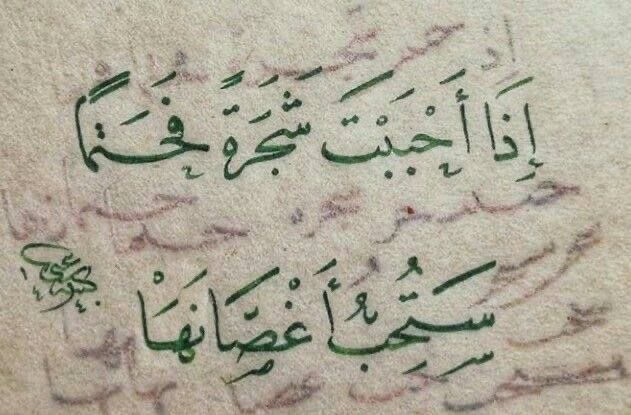 إِذَا أَحْبَبْتَ شَجَرَةً فَحَتمًا
سَتُحِبُّ أَغْصَانَهَا